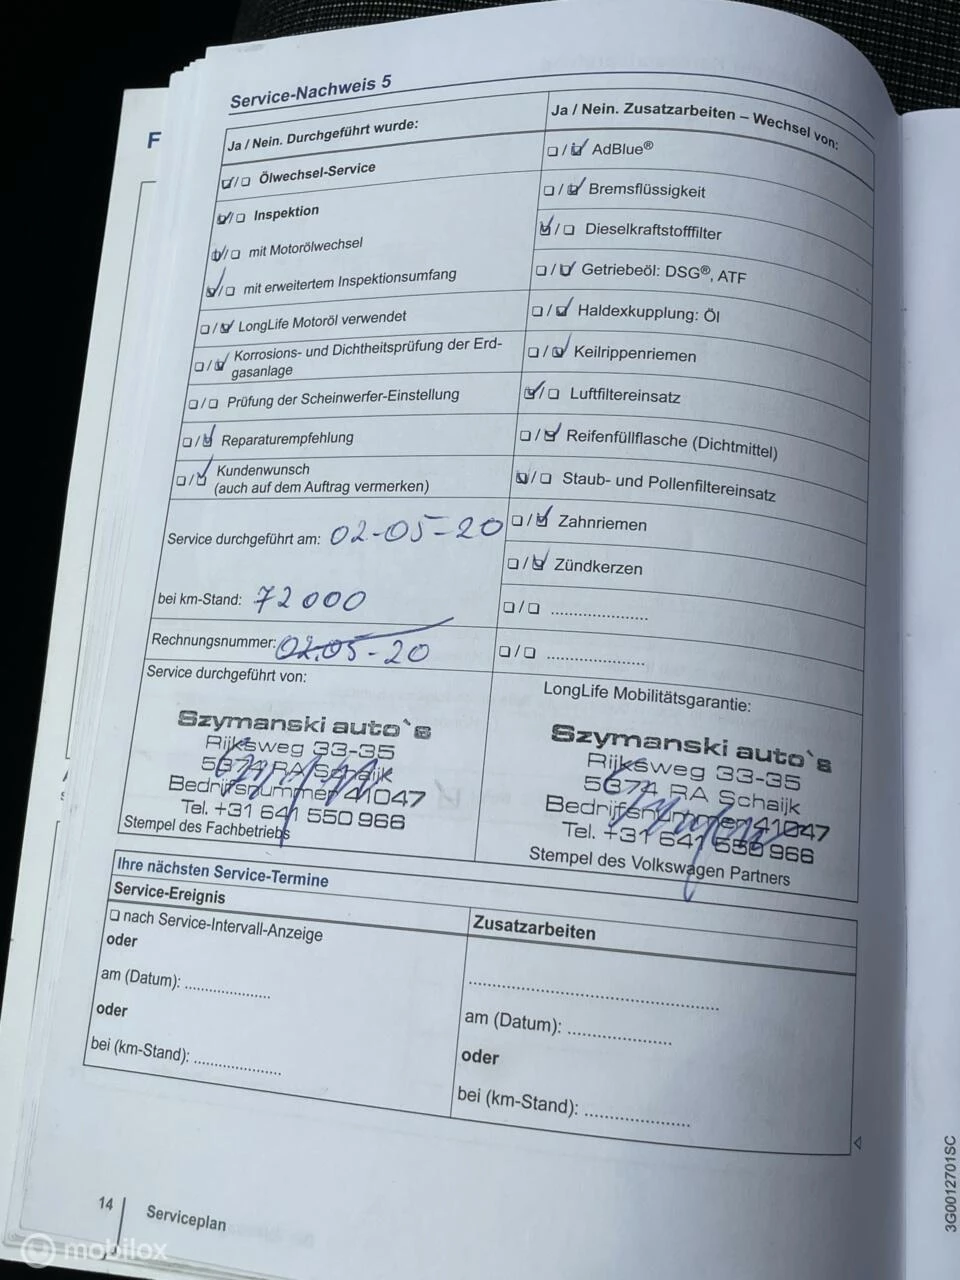 F
Service-Nachweis 5
Ja / Nein. Durchgeführt wurde:
☑/☐ Ölwechsel-Service
☑/☐ Inspektion
☑/☐ mit Motorölwechsel
☑/☐ mit erweitertem Inspektionsumfang
☐/☑ LongLife Motoröl verwendet
☐/☑ Korrosions- und Dichtheitsprüfung der Erd-
gasanlage
☐/☐ Prüfung der Scheinwerfer-Einstellung
☐/☑ Reparaturempfehlung
☐/☑ Kundenwunsch
(auch auf dem Auftrag vermerken)
Service durchgeführt am: 02-05-20
bei km-Stand: 72000
Rechnungsnummer: 02.05-20
Service durchgeführt von:
Szymanski auto`s
Rijksweg 33-35
5374 RA Schaijk
Bedrijfsnummer 41047
Tel. +31 641 550 966
Stempel des Fachbetriebs
Ja / Nein. Zusatzarbeiten – Wechsel von:
☐/☑ AdBlue®
☐/☑ Bremsflüssigkeit
☑/☐ Dieselkraftstofffilter
☐/☑ Getriebeöl: DSG®, ATF
☐/☑ Haldexkupplung: Öl
☐/☑ Keilrippenriemen
☑/☐ Luftfiltereinsatz
☐/☑ Reifenfüllflasche (Dichtmittel)
☑/☐ Staub- und Pollenfiltereinsatz
☐/☑ Zahnriemen
☐/☑ Zündkerzen
☐/☐ ....................
☐/☐ ....................
LongLife Mobilitätsgarantie:
Szymanski auto`s
Rijksweg 33-35
5374 RA Schaijk
Bedrijfsnummer 41047
Tel. +31 641 550 966
Stempel des Volkswagen Partners
Ihre nächsten Service-Termine
Service-Ereignis
☐ nach Service-Intervall-Anzeige
oder
am (Datum): ..................
oder
bei (km-Stand): ..................
Zusatzarbeiten
..........................................
am (Datum): ..................
oder
bei (km-Stand): ..................
14
Serviceplan
3G0012701SC
mobilox